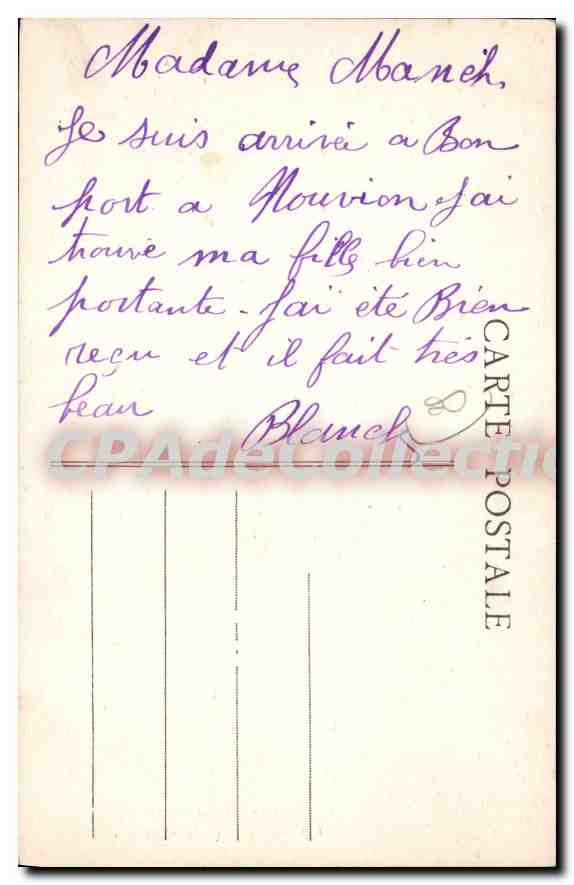 Madame Manch.
Je suis arrivée a Bon
port a Nouvion. J'ai
trouvé ma fille bien
portante. J'ai été Bien
reçu et il fait très
beau
Blanch
CARTE POSTALE
CPAdeCollection